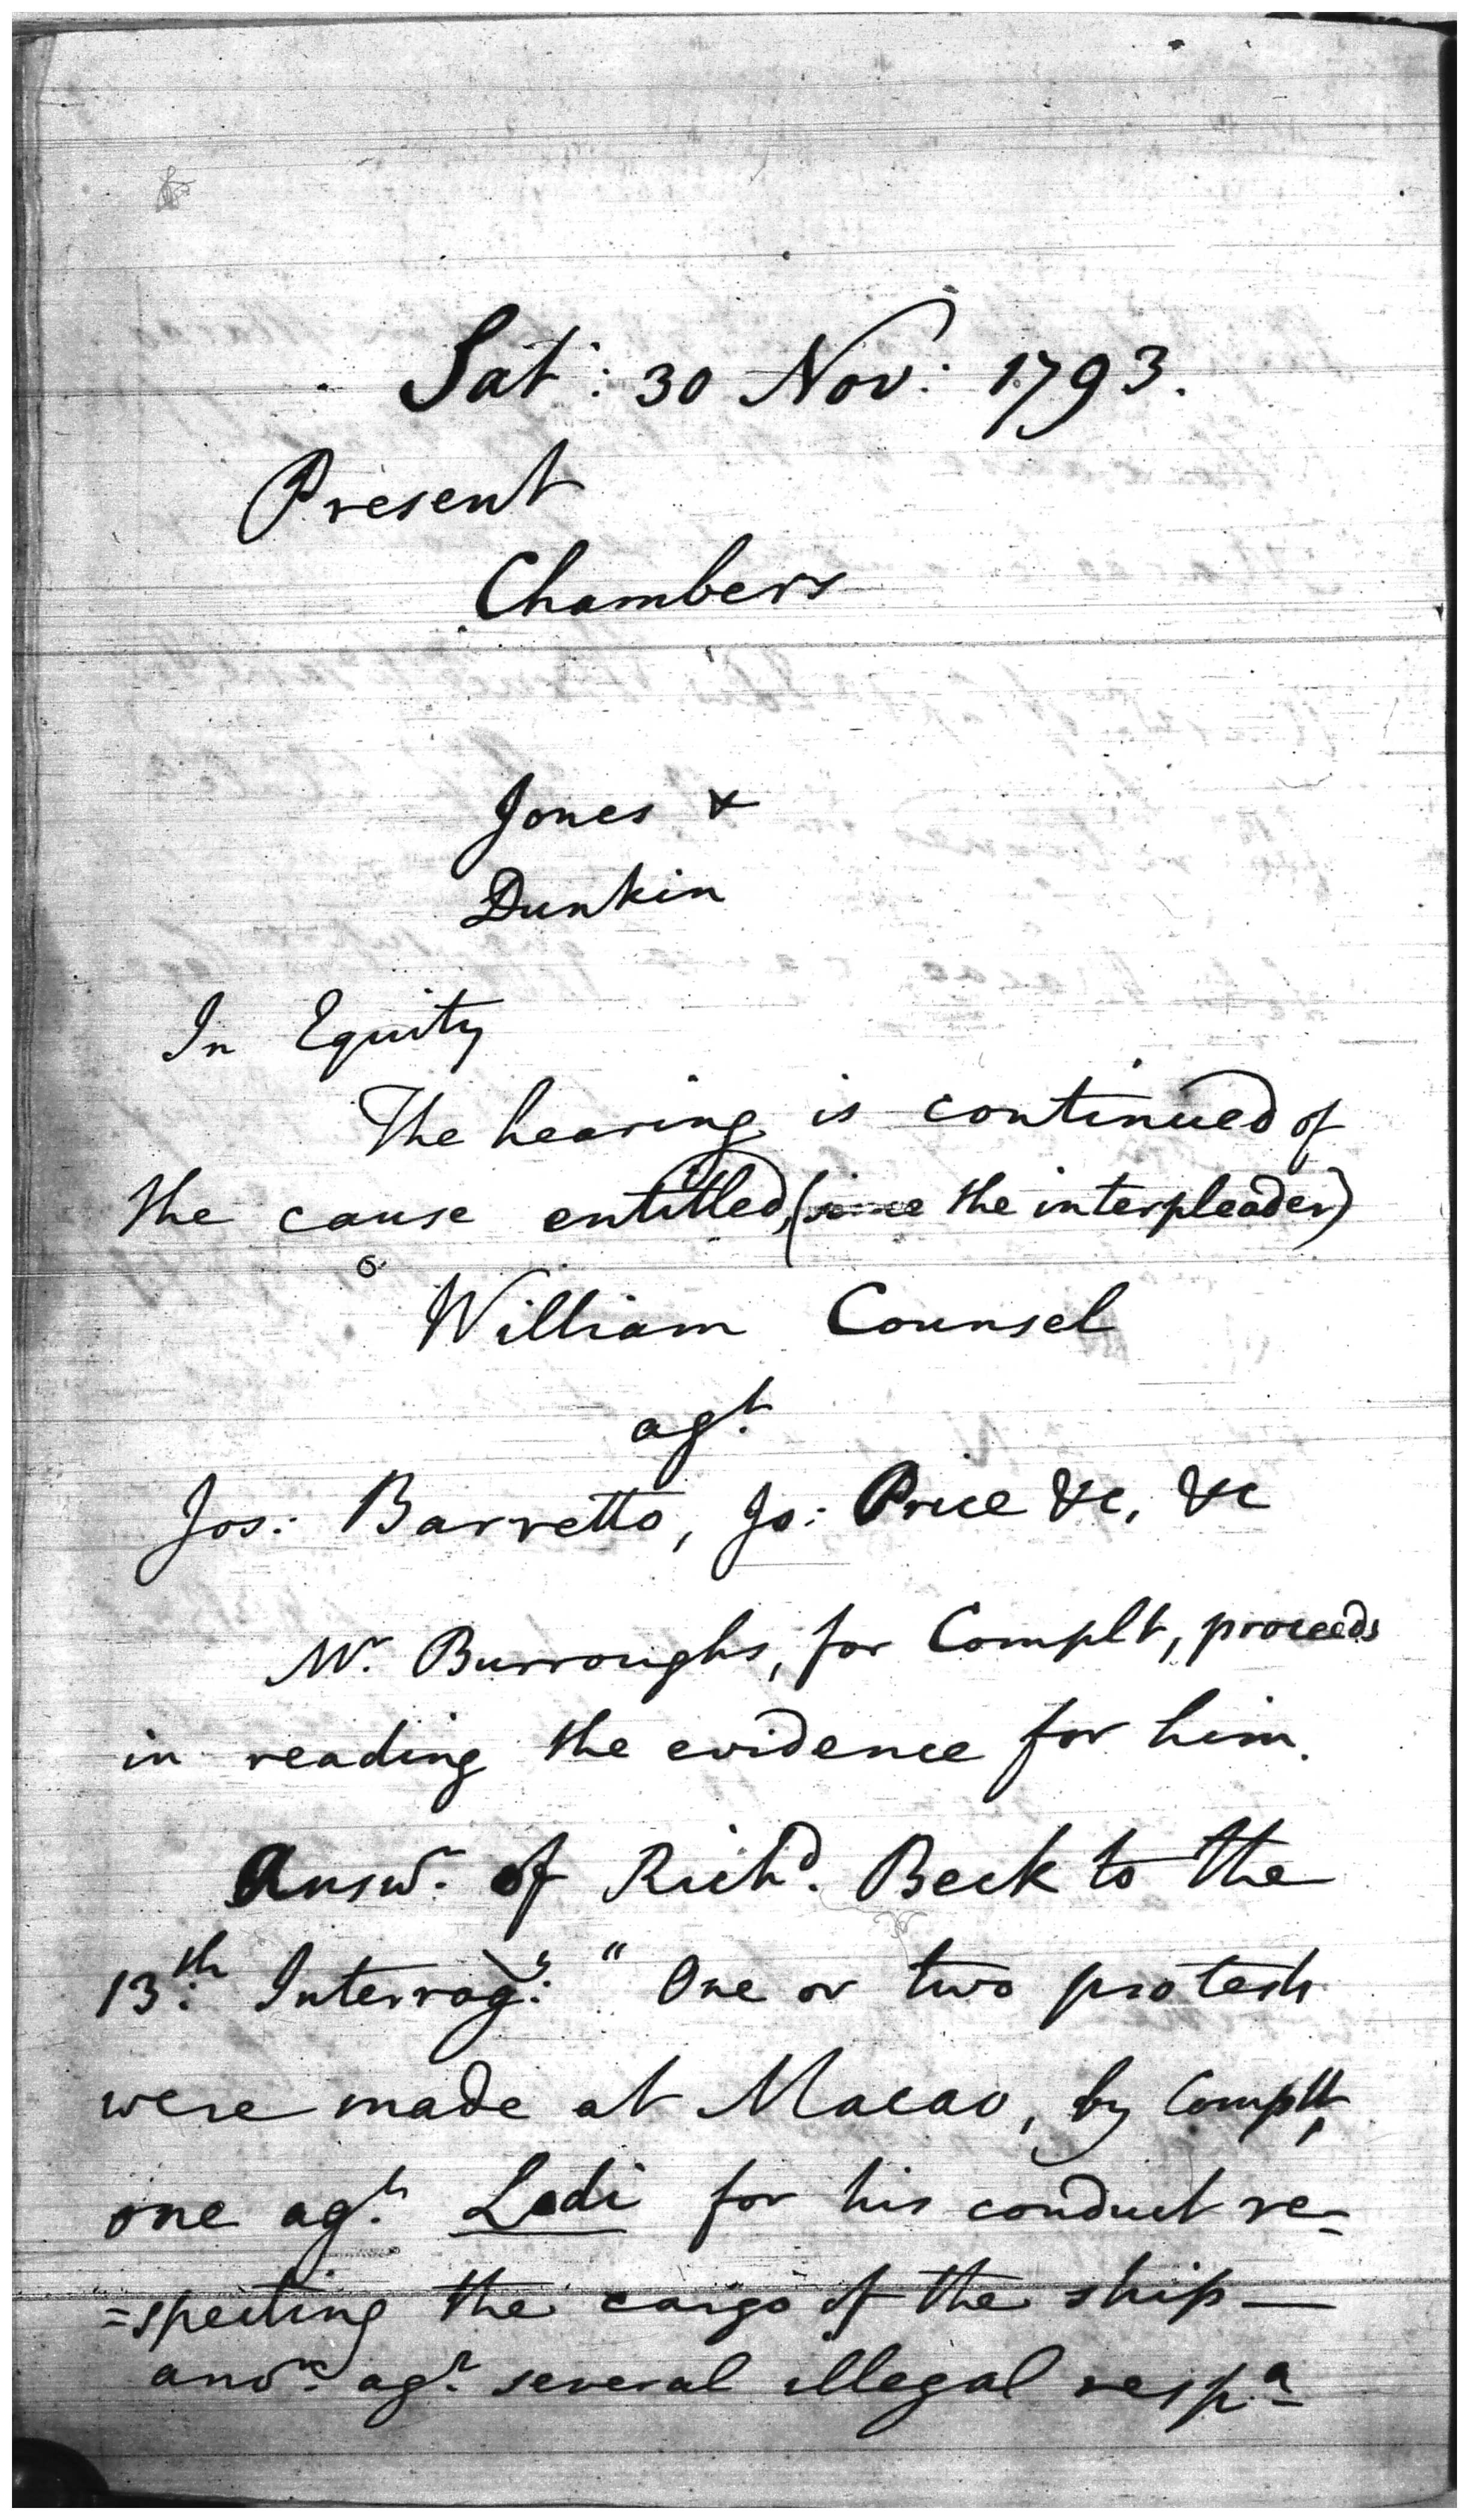 Sat: 30 Nov: 1793.
Present
Chambers
Jones &
Dunkin
In Equity
The hearing is continued of
the cause entitled, (since the interpleader)
William Counsel
agt.
Jos: Barretto, Jo: Price &c, &c
Mr. Burroughs, for Complt, proceeds
in reading the evidence for him.
Answr. of Richd. Beck to the
13th: Interrogy: "One or two protests
were made at Macao, by Complt,
one agt. Ladi for his conduct re-
=specting the cargo of the ship —
anor: agt. several illegal